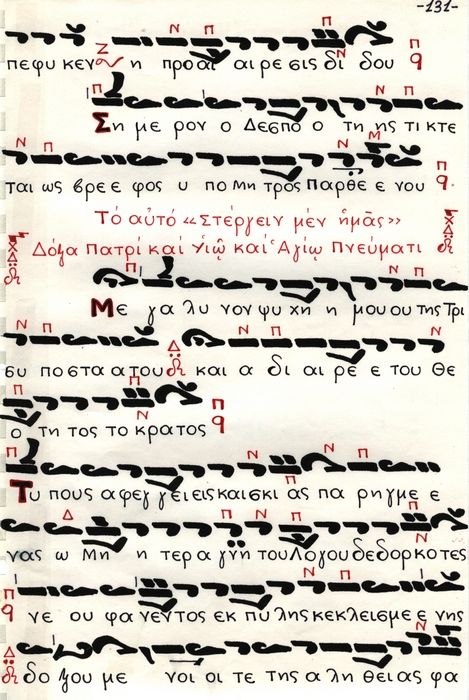 -131-
πεφυκεν η προαι αι ρε σις δι δου
Ση με ρον ο Δεσπο ο τη ης τι κτε
ται ως βρε ε φος υ πο μη τρος παρθε ε νου
Τό αὐτό «Στέργειν μέν ἡμᾶς»
Δόξα Πατρί καί Υἱῷ καί Ἁγίῳ Πνεύματι
Με γα λυ νον ψυ χη η μου ου της Τρι
συ πο στα α του και α δι αι ρε ε του θε
ο τη τος το κρατος
Τυ πους α φεγ γείεις και σκι ας πα ρηγ με ε
νας ω Μη η τερ α γνη του Λογου δε δορ κο τες
νε ου φα νεντος εκ πυ λης κεκλεισμε ε νης
δο ξου με νοι οι τε της α λη θει ας φα